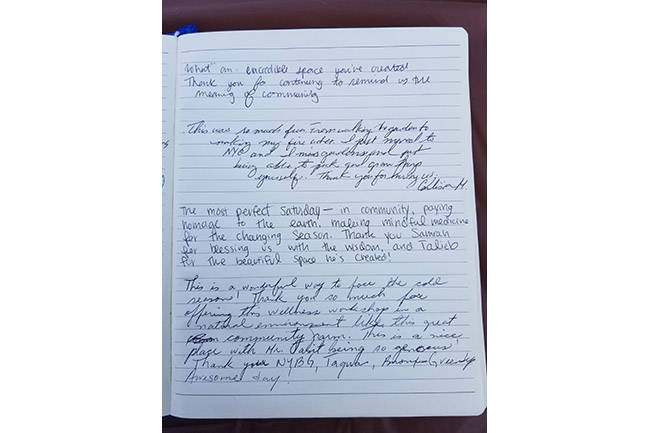 What an incredible space you've created
Thank you for continuing to remind us the
meaning of community
This was so much fun. From walking the garden to
making my fire cider. I just moved to
NYC and I miss gardening and just
being able to pick and grow things
yourself. Thank you for having us.
H.
The most perfect Saturday – in community, paying
homage to the earth, making mindful medicine
for the changing season. Thank you
for blessing us with the wisdom, and Talieb
for the beautiful space he's created!
This is a wonderful way to face the cold
season! Thank you so much for
offering this wellness workshop in a
natural environment like this great
community farm. This is a nice
place with Mr. being so generous!
Thank you NYBG, Taqwa, Bronx Green-Up
Awesome day!